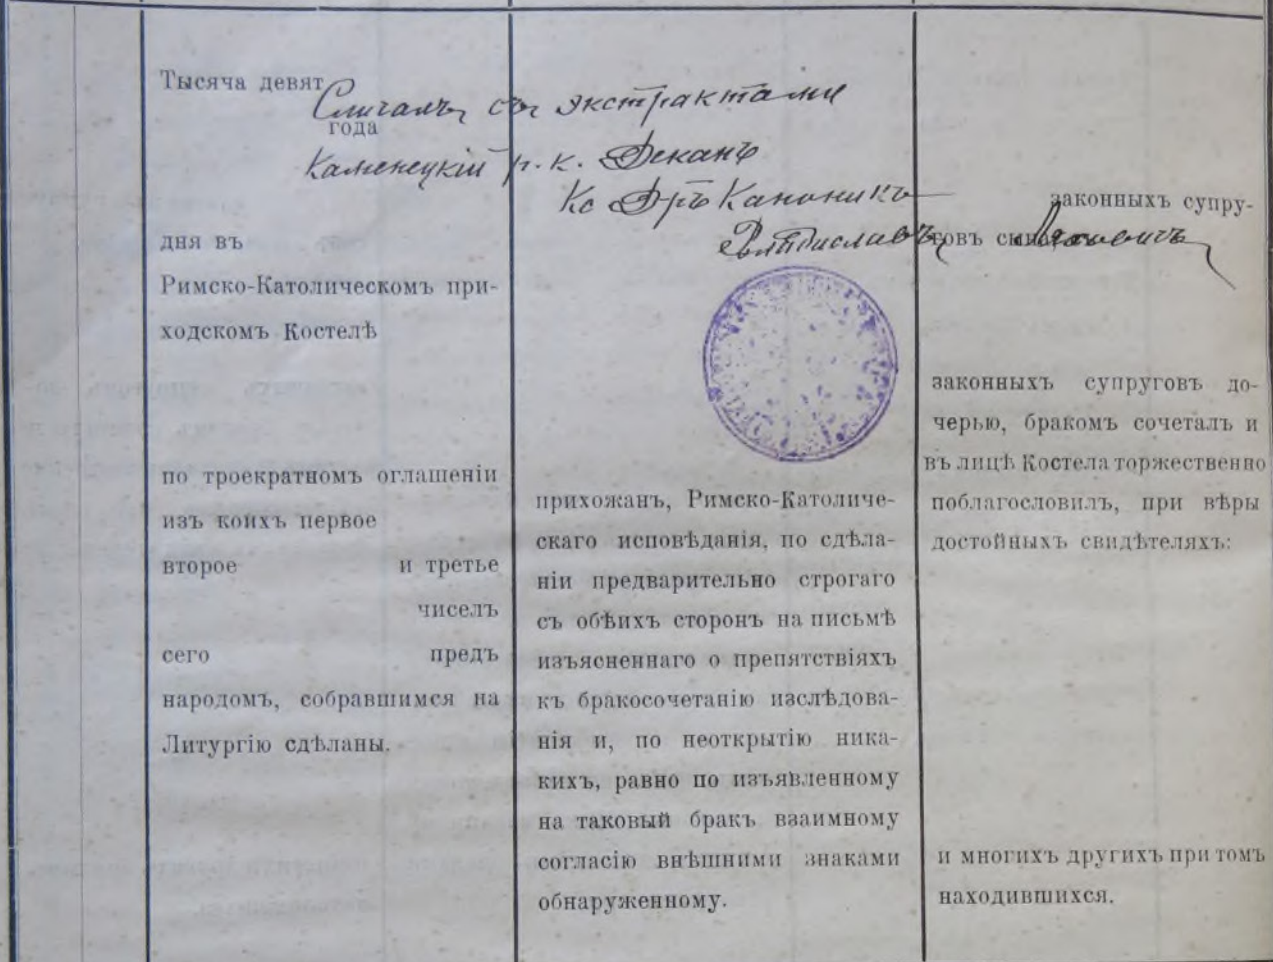 Тысяча девят
года
Сличалъ съ экстрактами
Каменецкій р. к. Деканъ
Кс Дръ Каноникъ
Владиславъ
дня въ
Римско-Католическомъ при-
ходскомъ Костелѣ
по троекратномъ оглашеніи
изъ коихъ первое
второе и третье
чиселъ
сего предъ
народомъ, собравшимся на
Литургію сдѣланы.
прихожанъ, Римско-Католиче-
скаго исповѣданія, по сдѣла-
ніи предварительно строгаго
съ обѣихъ сторонъ на письмѣ
изъясненнаго о препятствіяхъ
къ бракосочетанію изслѣдова-
нія и, по неоткрытію ника-
кихъ, равно по изъявленному
на таковый бракъ взаимному
согласію внѣшними знаками
обнаруженному.
законныхъ супру-
говъ сына
законныхъ супруговъ до-
черью, бракомъ сочеталъ и
въ лицѣ Костела торжественно
поблагословилъ, при вѣры
достойныхъ свидѣтеляхъ:
и многихъ другихъ при томъ
находившихся.